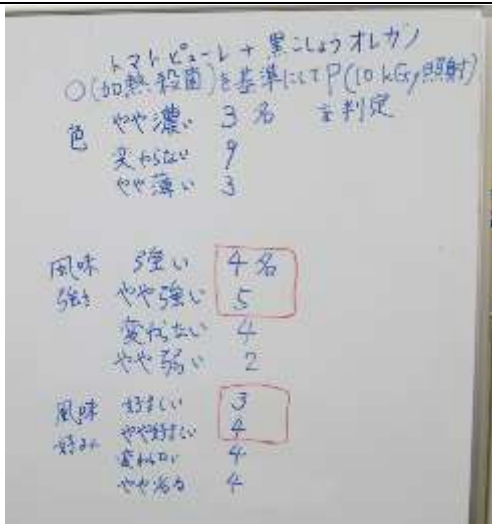 トマトピューレ + 黒こしょうオレガノ
○(加熱殺菌)を基準にしてP(10kGy照射)
を判定
色 やや濃い 3名
変わらない 9
やや薄い 3
風味 強い 4名
強さ やや強い 5
変わらない 4
やや弱い 2
風味 好ましい 3
好み やや好ましい 4
変わらない 4
やや劣る 4